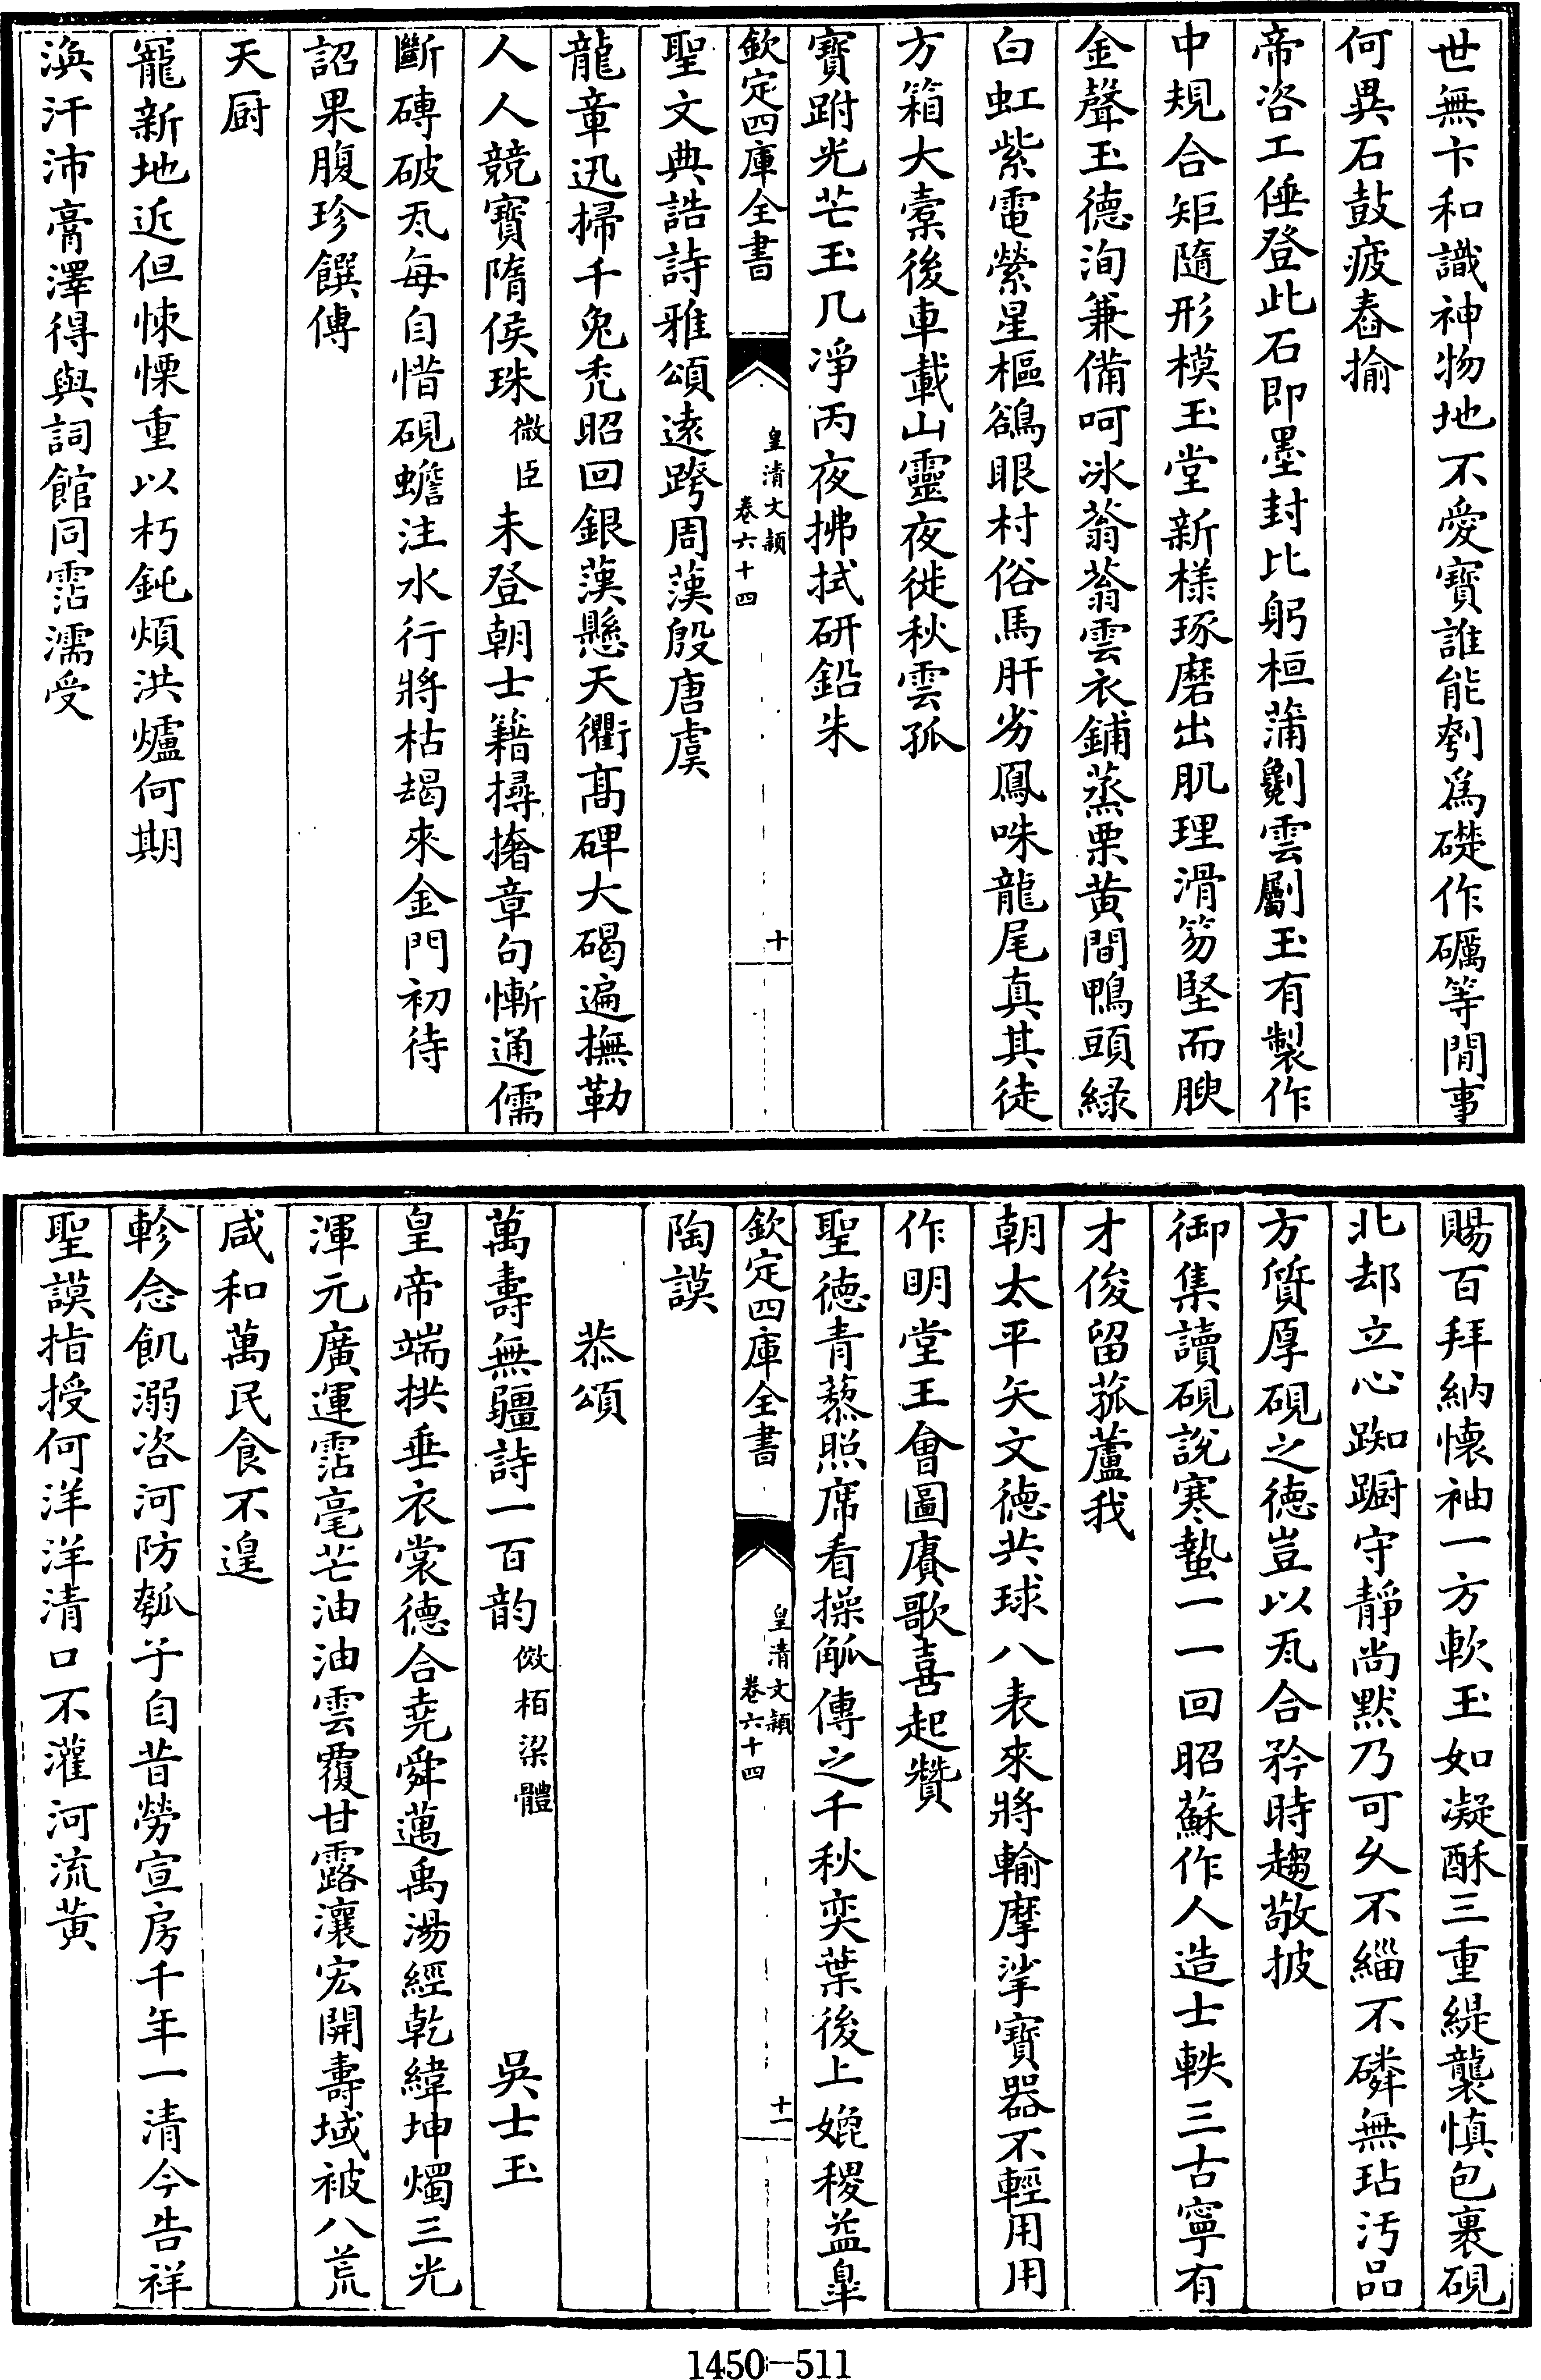 世無卞和識神物地不愛寶誰能刳爲礎作礪等閒事
何異石鼓疲舂揄
帝咨工倕登此石即墨封比躬桓蒲劖雲劚玉有製作
中規合矩隨形模玉堂新樣琢磨出肌理滑笏堅而腴
金聲玉德洵兼備呵冰蓊蓊雲衣鋪蒸栗黄間鴨頭緑
白虹紫電縈星樞鵒眼村俗馬肝劣鳳咮龍尾真其徒
方箱大橐後車載山靈夜徙秋雲孤
寶跗光芒玉几凈丙夜拂拭研鉛朱
欽定四庫全書
皇清文穎
卷六十四
十
聖文典誥詩雅頌遠跨周漢殷唐虞
龍章迅掃千兔秃昭回銀漢懸天衢髙碑大碣遍撫勒
人人競寶隋侯珠微臣未登朝士籍撏撦章句慚通儒
斷磚破瓦每自惜硯蟾注水行將枯朅來金門初待
詔果腹珍饌傳
天厨
寵新地近但悚慄重以朽鈍煩洪爐何期
渙汗沛膏澤得與詞館同霑濡受
賜百拜納懷袖一方軟玉如凝酥三重緹襲慎包裹硯
北却立心踟蹰守靜尚黙乃可久不緇不磷無玷汚品
方質厚硯之德豈以瓦合矜時趨敬披
御集讀硯說寒蟄一一回昭蘇作人造士軼三古寧有
才俊留菰蘆我
朝太平矢文德共球八表來將輸摩挲寶器不輕用用
作明堂王會圖賡歌喜起贊
聖德青藜照席看操觚傳之千秋奕葉後上媲稷益臯
欽定四庫全書
皇清文穎
卷六十四
十一
陶謨
恭頌
萬壽無疆詩一百韵倣栢梁體 吳士玉
皇帝端拱垂衣裳德合堯舜邁禹湯經乾緯坤燭三光
渾元廣運霑毫芒油油雲覆甘露瀼宏開壽域被八荒
咸和萬民食不遑
軫念飢溺咨河防瓠子自昔勞宣房千年一清今告祥
聖謨指授何洋洋清口不灌河流黄
1450-511